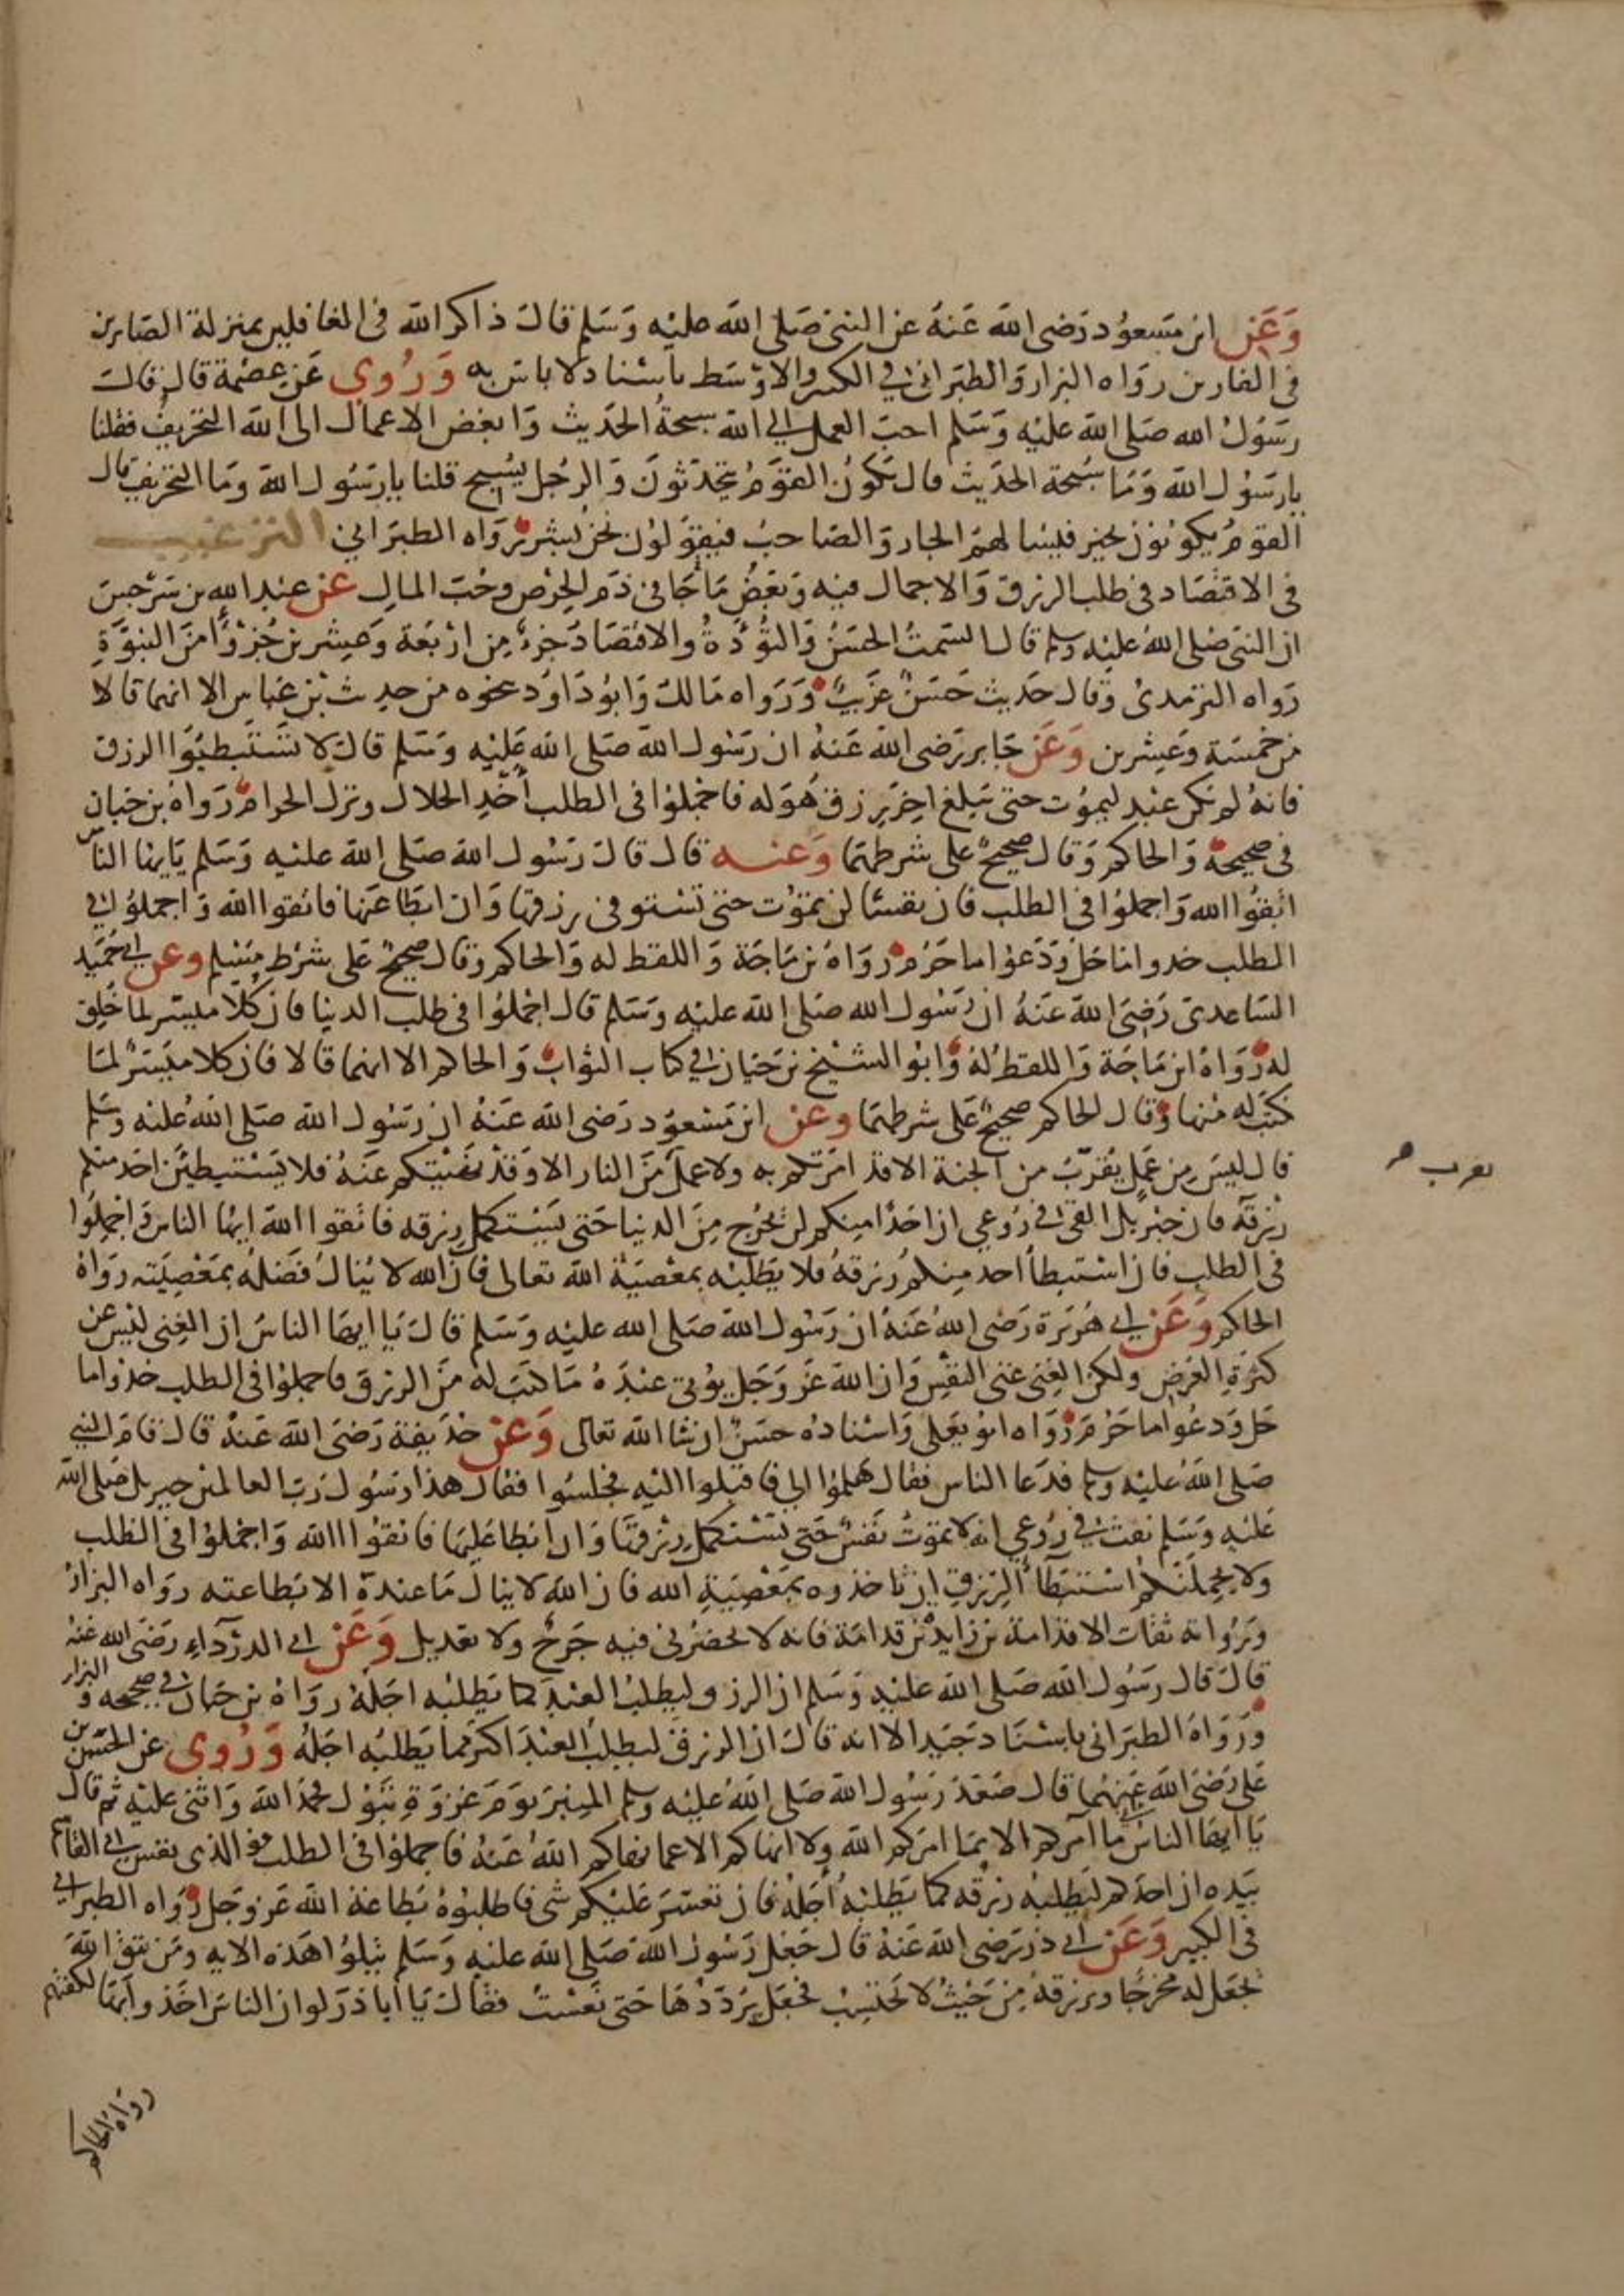 وَعَن ابن مسعود رَضى الله عَنهُ عن النبى صَلى الله عليه وَسَلم قال ذاكر الله فى الغافلين بمنزلة الصَابرين
فى الفارين رواه البزار وَالطبَرانى فى الكبير والاوسَط باسناد لا باس به وَرُوى عَن عصْمة قال قال
رسَوُل الله صَلى الله عليْه وَسَلم احبّ العمل الى الله سبحةُ الحَديث وَابغض الاعمال الى الله التحريف فقلنا
يارسَوُل الله وَمَا سُبحة الحَديث قال تكون القوْمُ يتحدثونَ وَالرجُل يسُبح قلنا يارسَوُل الله وَما التحريف قال
القومُ يكونون بخير فيسالهمُ الجار وَالصَاحبُ فيقوَلون نحن بشر رَواه الطبَرانى الترغيب
فى الاقتصَاد فى طلب الرزق وَالاجمال فيه وَبعَضُ مَا جَا فى ذَم الحِرْص وحُب المال عَن عبد الله بن سَرْجسَ
ان النبى صَلى اللهُ عليْه وسلم قال السَمتُ الحسَنُ وَالتؤُدَةُ والاقتصَادَ جزءٌ مِن ارْبَعَة وَعِشرين جُزْوًا منَ النبوَّةِ
رَواه الترمدىُ وَقال حَديث حَسَنٌ غرَيبٌ وَرَواه مَالك وَابوُدَاوَد بنحوه من حديث بْن عَباس الا انهما قالا
من خمسَة وَعِشرين وَعَن جَابر رَضى الله عَنهُ ان رَسَوُل الله صَلى الله عَليْه وَسَلم قال لا تسْتَبطيَوُا الرزق
فانهُ لم يكن عبد ليموُت حتى يَبلغ اخِرَ رزق هُوَ له فاجْملوُا فى الطلب أخْذِ الحلال وترك الحرام رَوَاهُ بن حبان
فى صحيحة وَالحاكم وَقال صحيحٌ على شرطهمَا وَعنه قال قال رَسُول الله صَلى الله عليْه وَسَلم يَايها الناس
اتقوُا الله وَاجملوُا فى الطلب فان نفسًا لن تموُت حتى تستوفى رزقها وَان ابَطَا عَنها فاتقوا الله وَاجملوُا فى
الطلب خدوا ماحَل وَدَعوُا ما حَرُمَ رَوَاهُ بن مَاجَة وَاللفظ له وَالحاكم وقال صحيحٌ عَلى شرْط مسْلم وعن ابى حُمَيد
السَاعدى رَضىَ اللهَ عَنهُ ان رَسَوُل الله صَلى الله عليْه وَسَلم قال اجْملوُا فى طلب الدنيا فان كُلًا ميسَّر لما خُلِق
له رَوَاهُ ابن مَاجَة وَاللفظ لهُ وَابوُ الشيْخ بن حَيان فى كتاب الثواب وَالحاكم الا انهما قالا فان كلا ميَسَرٌ لمَا
كتَب له منها وَقال الحاكم صحيحٌ عَلى شرطهمَا وعن ابن مَسْعوُد رَضى الله عَنهُ ان رَسُول الله صَلى اللهُ عليْه وَسَلم
قال ليسَ مِن عَملٍ يُقرّبُ من الجنة الا قد امَرتكم به ولا عملٌ مَن النار الا وَقدْ نَهَيْتكم عَنهُ فلا يَسْتبطيَن احَد منكم
يقرب م
رِزقهَ فان جبْريل القى فى رُوعى ان احَدًا منِكم لن يخرُج مِن الدنيا حَتى يَسْتكمل رِزقه فاتقوا الله ايها الناس وَاجمِلوُا
فى الطلب فان اسْتبطأ احد منِكم رزقهُ فلا يَطلبْه بمعْصيَة الله تعالى فان الله لا يُنالُ فَضلهُ بمَعْصِيَته روَاهُ
الحاكم وَعَن ابى هُرَيَرة رَضى اللهُ عَنهُ ان رَسُول الله صَلى الله عليه وَسَلم قال يَا ايها الناسُ ان الغِنى ليَس عن
كثرَةِ العَرض ولكن الغِنى غنى النفسِ وَان الله عَز وَجَل يؤتى عبْدَهُ مَا كتَبَ لهُ مَن الرزق فاجملوُا فى الطلب خذوا ما
حَل وَدعُوا ما حَرُمَ رَوَاه ابوُ يعَلى وَاسْنادهُ حسَنٌ ان شا الله تعالى وَعن حذيفة رَضىَ الله عَنهُ قال قامَ النبى
صَلى اللهُ عليْه وسلم فدَعَا الناس فقال هَلموُا الى فاقبَلوا اليْه فجلسُوا فقال هذا رَسُول رَب العالمين جبريل صَلى الله
عَليْه وَسَلم نفث فى رُوعى انه لا تموُتُ نَفسٌ حَتى تسْتكملِ رِزقهَا وَان ابطا عَليهَا فاتقوُا الله وَاجْملوُا فى الطلب
ولا يحمِلَنكمُ اسْتبَطَأُ الرِزق ان تاخذوه بمَعْصيَةِ الله فان الله لا ينال مَا عندهُ الا بَطاعته رَواه البزارُ
وَرُواته ثقات الا قدامة بن زايدة بن قدامَة فانه لا يحضرُنى فيه جَرحٌ ولا تعديل وَعَن ابى الدرْدَاءِ رَضىَ الله عَنهُ
قال قال رَسُول الله صَلى الله عليْه وَسَلم ان الرز وليطلبُ العبْدَ كما يَطلبُه اجَلهُ رَوَاهُ بن حبان فى صحيحه وَ البزار
وَرَوَاهُ الطبَرانى باسْنَاد جَيَد الا انه قال ان الرزقَ ليطلبُ العبْدَ اكثَر مما يَطلبُه اجَلهُ وَرُوى عن الحسَن بن
عَلى رَضىَ الله عَنهُمَا قال صَعَدَ رَسُول الله صَلى اللهُ عليْه وسلم المنِبَر يوَمَ غزوَةِ تبَوُك فحمدَ اللهَ وَاثنى عليْه ثم قال
يَا ايها الناسُ ما آمركم الا بمَا امَركم الله ولا انهاكم الا عما نهاكم اللهُ عَنهُ فاجملوُا فى الطلب فو الذى نفسُ ابى القاسم
بيَده ان احَدَكم ليَطلبُه رزقه كما يَطلبُهُ أجَلهُ فان تعسَّرَ عَليْكم شى فاطلبوُهُ بَطاعَة الله عَز وَجَل رَوَاه الطبرانى
فى الكبير وَعَن ابى ذر رَضى الله عَنهُ قال جَعَل رَسُول الله صَلى الله عليْه وَسَلم يتلوُا هَذه الايه ومَن يتق الله
يجعَل له مخرجًا ويرزقهُ مِن حَيْثُ لا يَحتسِبُ فجَعَل يَردّدُهَا حَتى نَعسْتُ فقال يَا أبا ذَر لو ان الناسَ اخَذوا بهَا لكفتهم
رَوَاهُ الحاكم